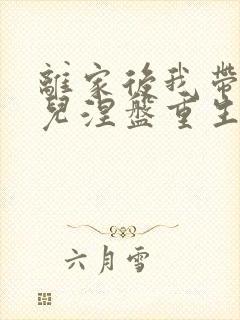 離家後我帶
兒涅盤重生
六月雪